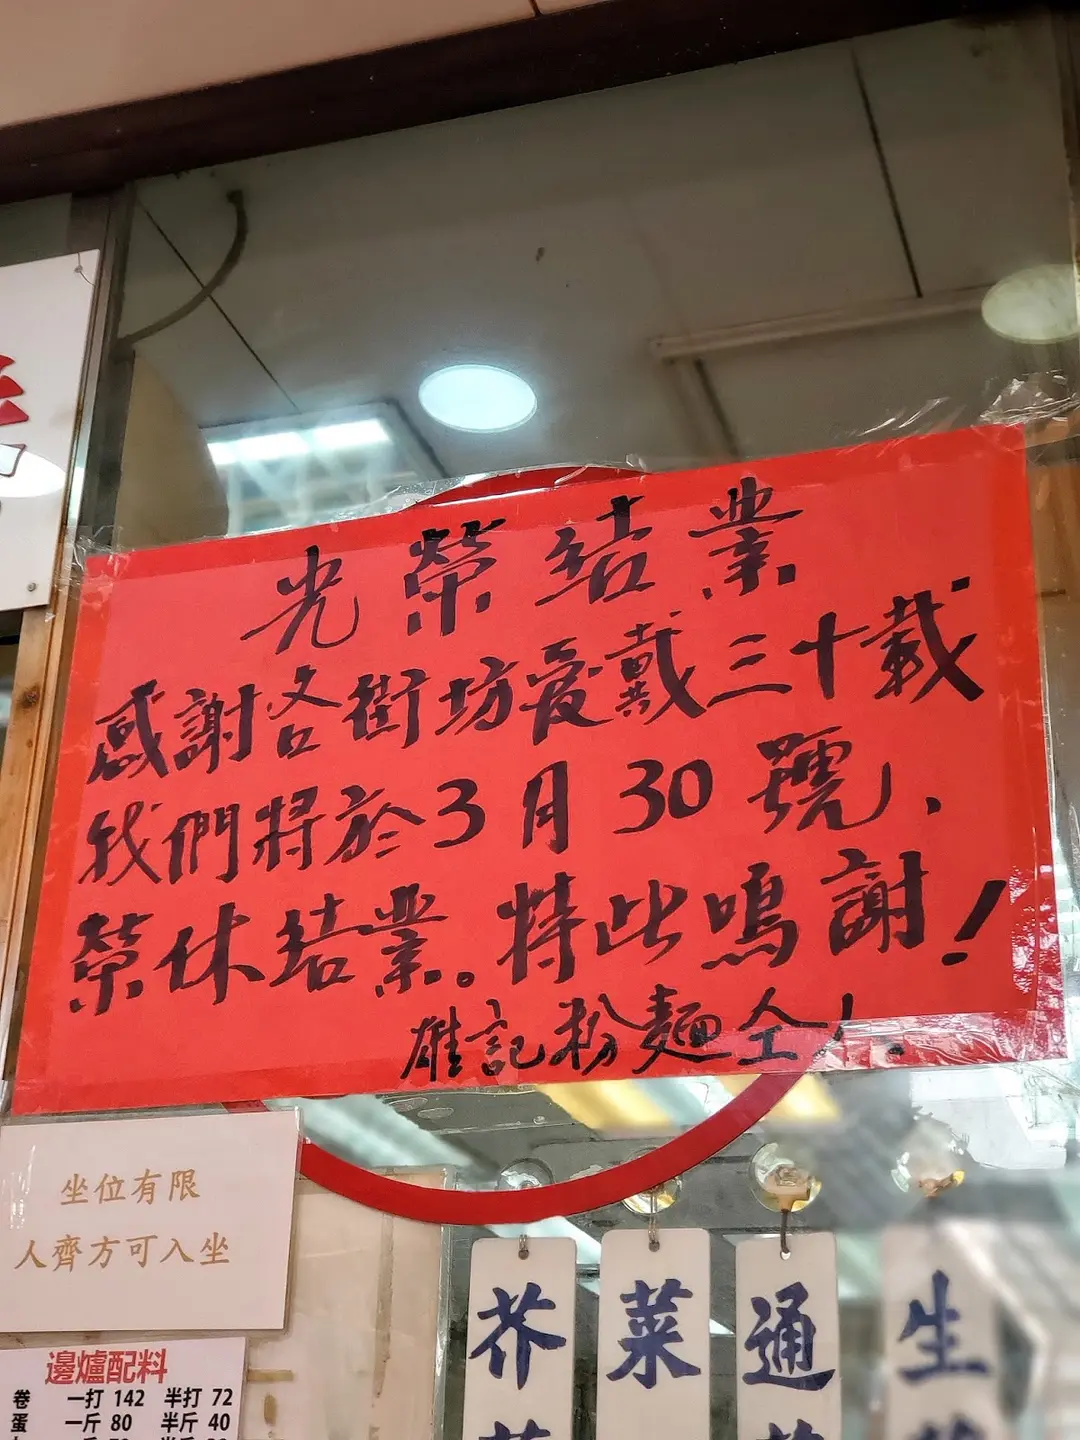 光榮結業
感謝各街坊愛戴三十載
我們將於3月30號，
榮休結業。特此鳴謝！
雄記粉麵仝人
坐位有限
人齊方可入坐
邊爐配料
卷 一打 142 半打 72
蛋 一斤 80 半斤 40
芥
菜
通
生